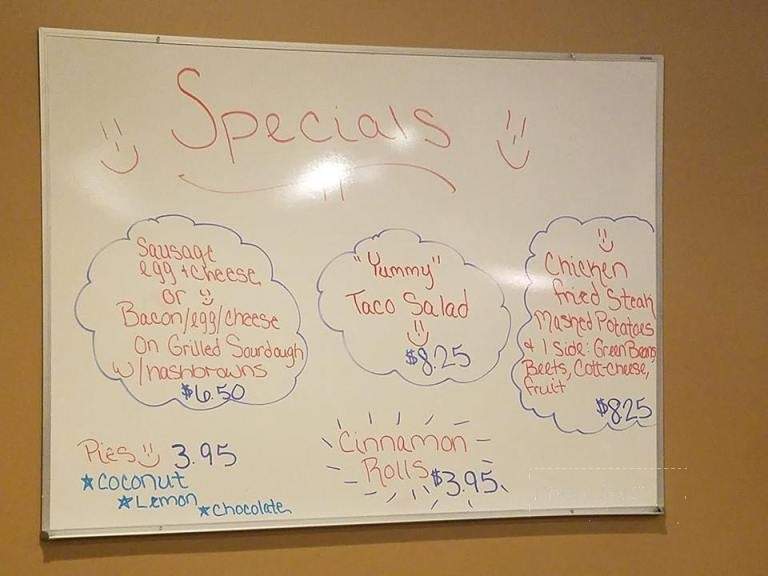 Specials
Sausage
egg + cheese
or
Bacon/egg/cheese
on Grilled Sourdough
w/hashbrowns
$6.50
"Yummy"
Taco Salad
$8.25
Chicken
fried Steak
Mashed Potatoes
& 1 side: Green Beans,
Beets, Cott-cheese,
fruit
$825
Pies 3.95
★ coconut
★ Lemon
★ chocolate
Cinnamon
Rolls $3.95